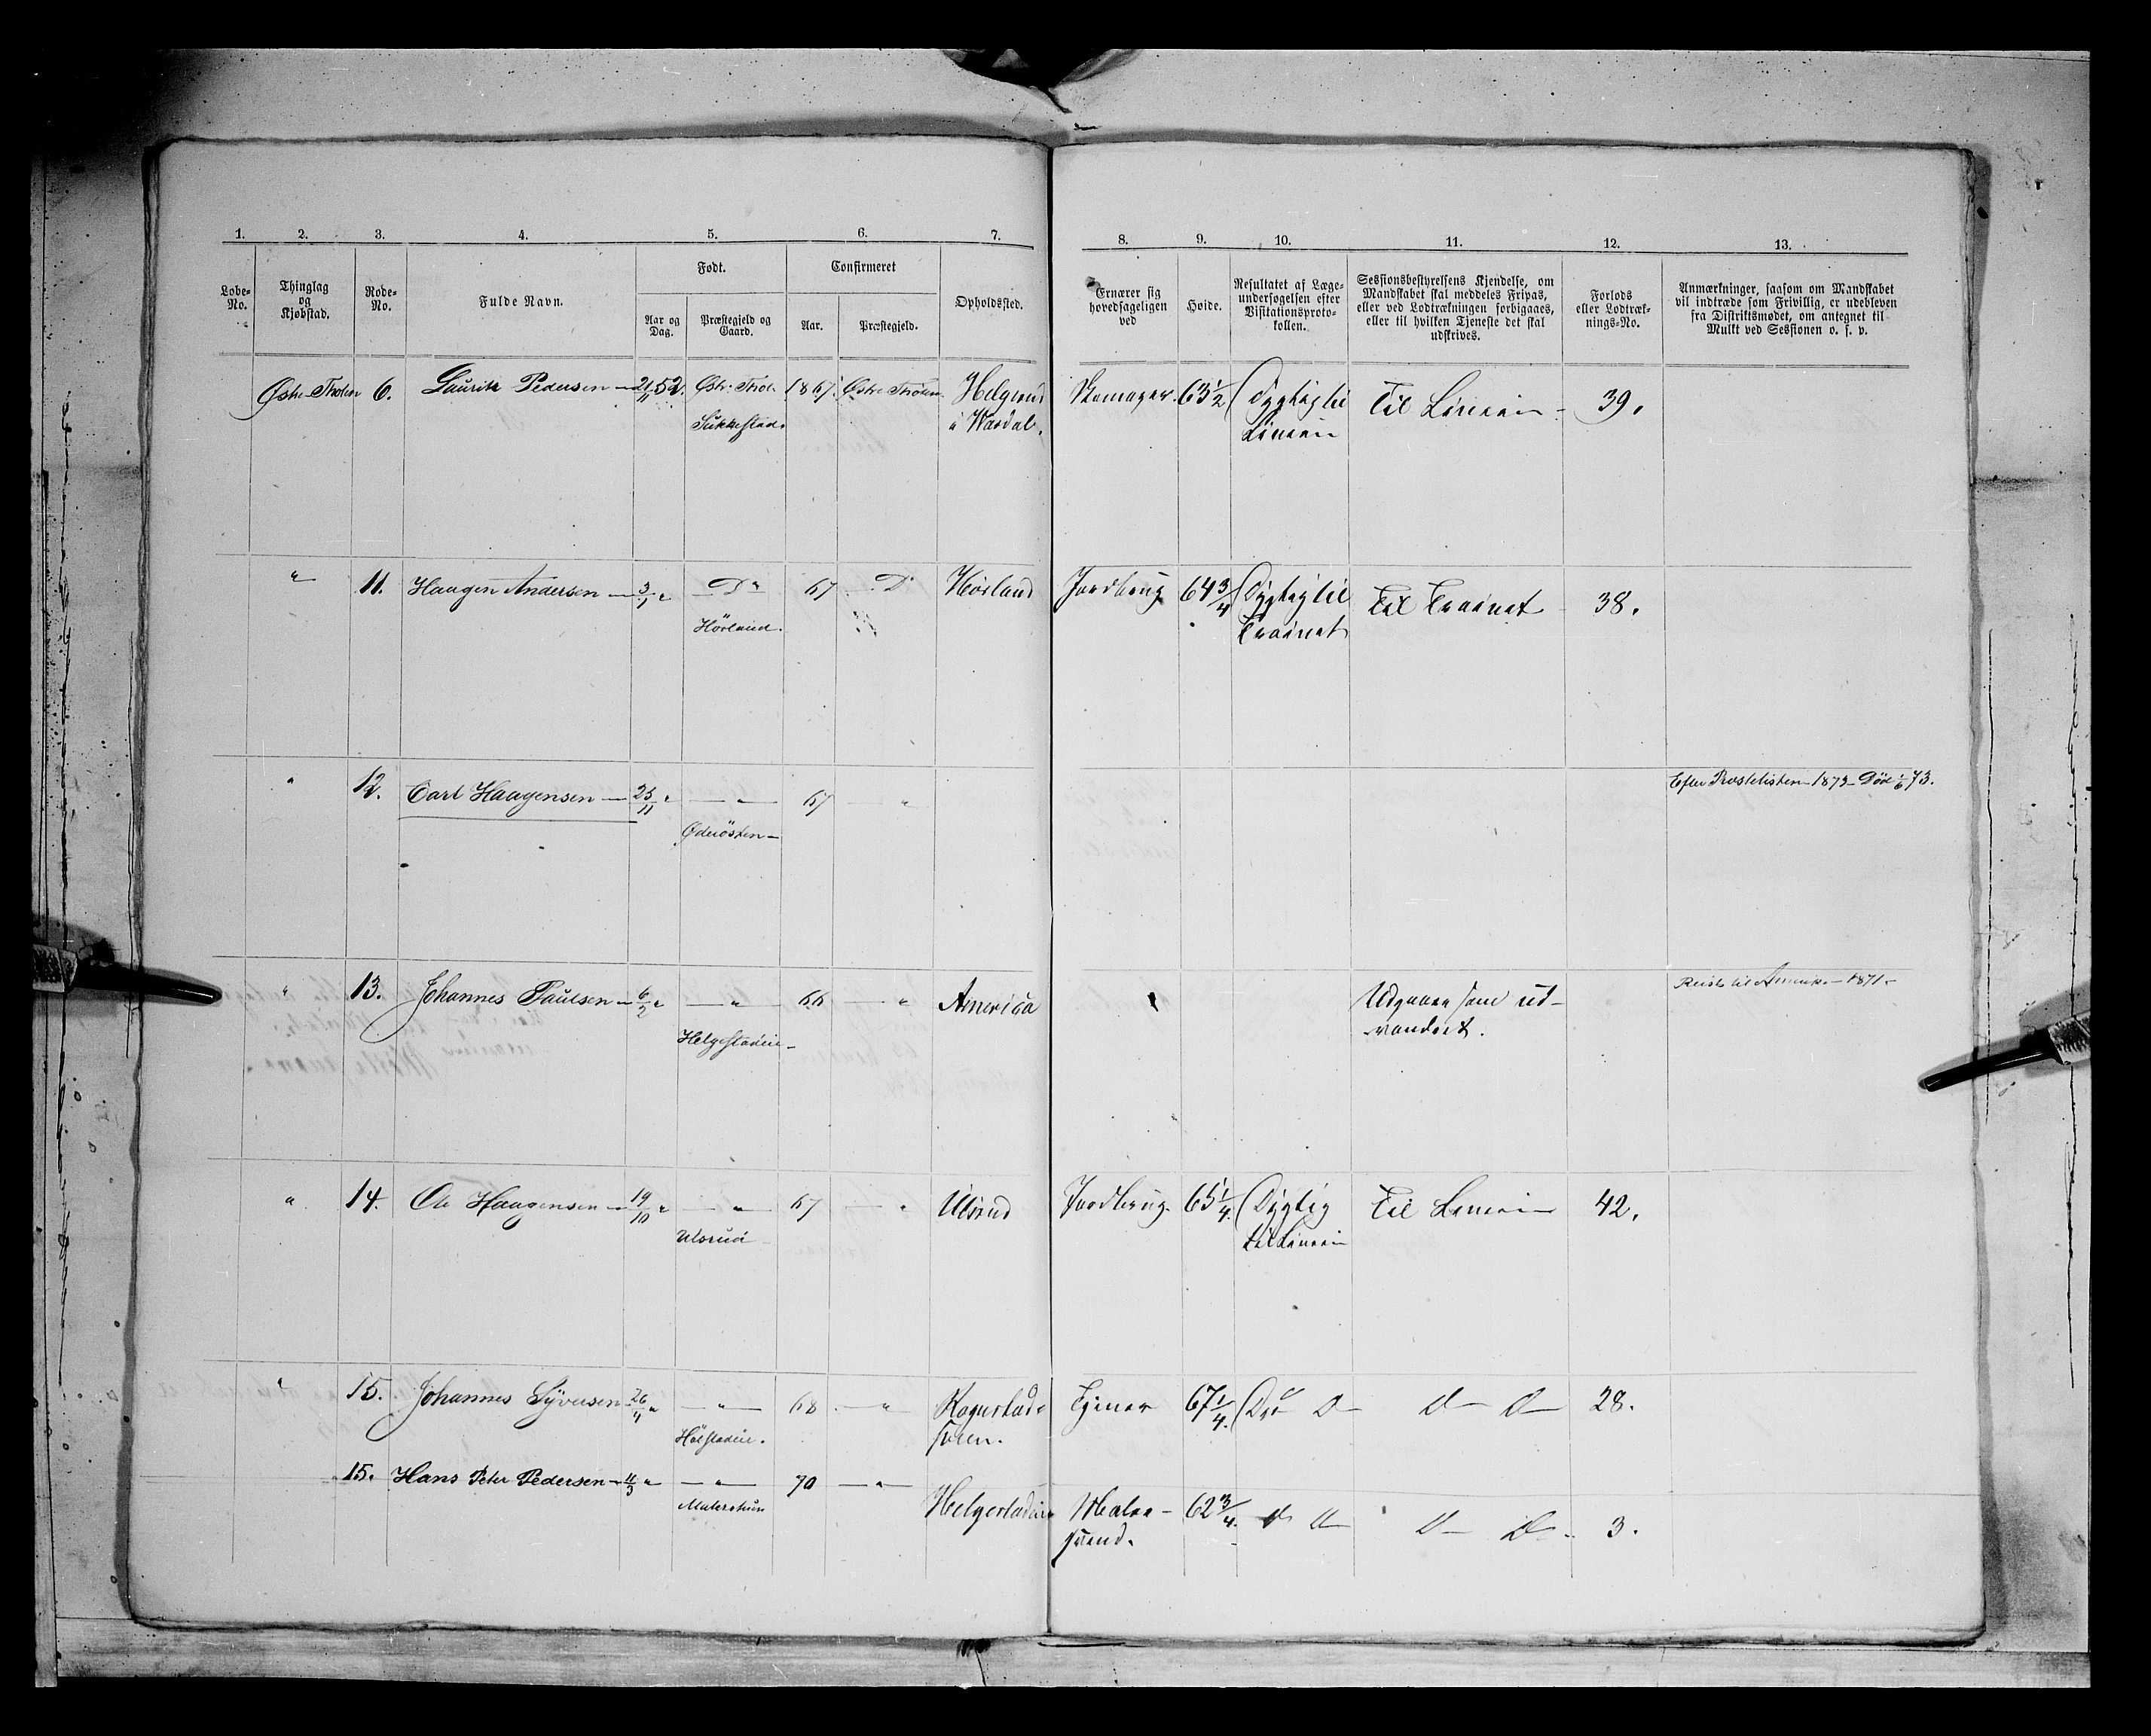 1. 2. 3. 4. 5. 6. 7. 8. 9. 10. 11. 12. 13.
Løbe-No.
Thinglag og Kjøbstad.
Rode-No.
Fulde Navn.
Født.
Aar og Dag.
Præstegjeld og Gaard.
Confirmeret
Aar.
Præstegjeld.
Opholdssted.
Ernærer sig hovedsageligen ved
Høide.
Resultatet af Læge-undersøgelsen efter Visitationsproto-kollen.
Sessionsbestyrelsens Kjendelse, om Mandskabet skal meddeles Fripas, eller ved Lodtrækningen forbigaaes, eller til hvilken Tjeneste det skal udskrives.
Forlods eller Lodtræk-nings-No.
Anmærkninger, saasom om Mandskabet vil indtræde som Frivillig, er udebleven fra Distriktsmødet, om antegnet til Mulkt ved Sessionen o. s. v.
Østre Thoten 6. Lauritz Pedersen — 21/11 52. Østr. Thot. 1867. Østre Thoten Helgerud Skomager. 63 1/2 Dygtig til Til Linien — 39.
Sukkestad. i Wardal. Linien
" 11. Haagen Andersen — 3/1 " — Do 67 — Do Hørland Jordbrug 64 3/4 Dygtig til Til Trainet 38.
Hørland. Trainet
" 12. Carl Haagensen — 25/11 " — " — 67 — " Efter Præstelisten 1873 — Död 1/6 73.
Ødeösten —
" 13. Johannes Paulsen — 6/2 " — " — 66 — " America Udgaaer som ud- Reist til Amerika — 1871 —
Helgestadeie — vandret.
" 14. Ole Haagensen — 19/10 " — " — 67 — " Ulsrud Jordbrug. 65 1/4. Dygtig Til Linien 42.
Ulsrud til Linien
" 15. Johannes Syversen 26/4 " — " — 68 — " Tjener 67 1/4. D — D — D — 28.
Hölstadeie.
15. Hans Peter Pedersen — 11/3 " — " — 70 — " — Helgestadeie Maler- 62 3/4. D D — D — D — 3.
svend.